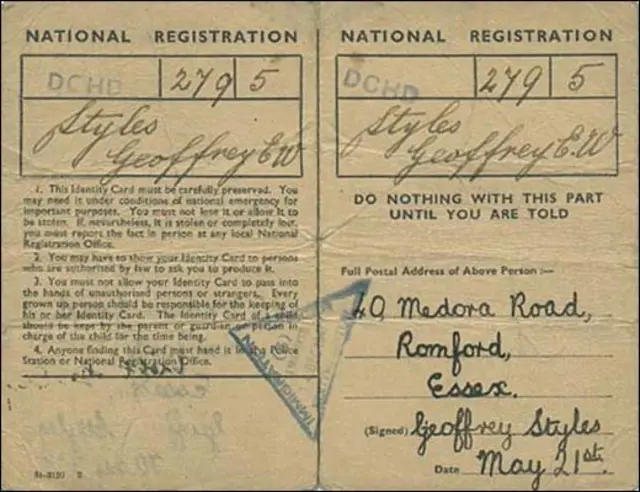 NATIONAL REGISTRATION
DCHD
279
5
Styles
Geoffrey E W
1. This Identity Card must be carefully preserved. You
may need it under conditions of national emergency for
important purposes. You must not lose it or allow it to
be stolen. If, nevertheless, it is stolen or completely lost,
you must report the fact in person at any local National
Registration Office.
2. You may have to show your Identity Card to persons
who are authorised by law to ask you to produce it.
3. You must not allow your Identity Card to pass into
the hands of unauthorised persons or strangers. Every
grown up person should be responsible for the keeping of
his or her Identity Card. The Identity Card of a child
should be kept by the parent or guardian or person in
charge of the child for the time being.
4. Anyone finding this Card must hand it in at a Police
Station or National Registration Office.
NATIONAL REGISTRATION
DCHD
279
5
Styles
Geoffrey E.W
DO NOTHING WITH THIS PART
UNTIL YOU ARE TOLD
Full Postal Address of Above Person :—
40 Medora Road,
Romford,
Essex.
(Signed) Geoffrey Styles
Date May 21st.
IMMIGRATION